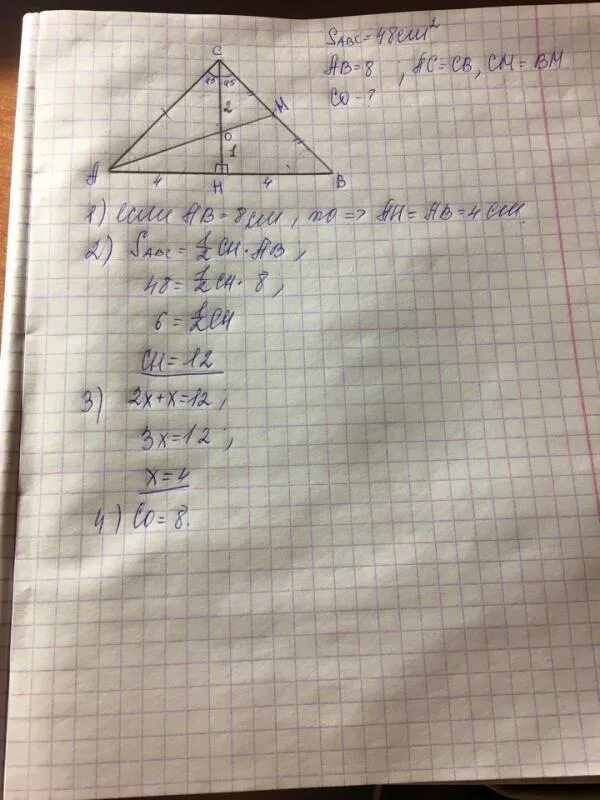 S_ABC = 48 см²
AB = 8 , AC = CB, CM = BM
CO - ?
C
45 45
2
M
O
1
A
4
H
4
B
1) если AB = 8 см, то => AH = AB = 4 см.
2) S_ABC = 1/2 CH · AB,
48 = 1/2 CH · 8,
6 = 1/2 CH
CH = 12
3) 2x + x = 12,
3x = 12,
x = 4
4) CO = 8.